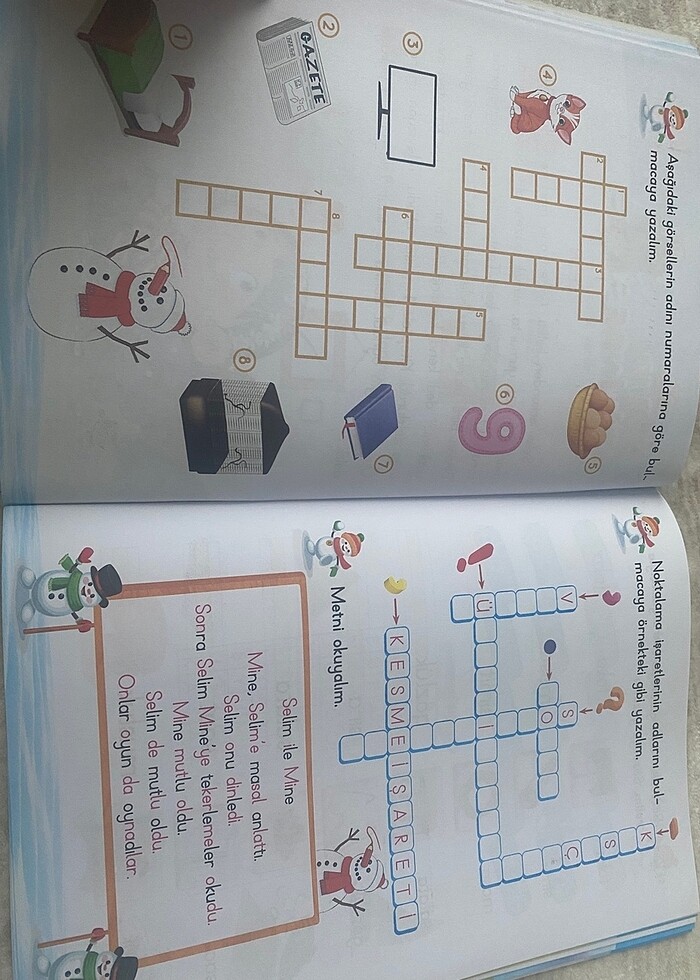 Aşağıdaki görsellerin adını numaralarına göre bul-
macaya yazalım.
1
2
GAZETE
3
4
5
6
7
8
1
2
3
4
5
6
7
8
Noktalama işaretlerinin adlarını bul-
macaya örnekteki gibi yazalım.
V
Ü
S
O
İ
K
S
Ç
KESME İŞARETİ
Metni okuyalım.
Selim ile Mine
Mine, Selim'e masal anlattı.
Selim onu dinledi.
Sonra Selim Mine'ye tekerlemeler okudu.
Mine mutlu oldu.
Selim de mutlu oldu.
Onlar oyun da oynadılar.